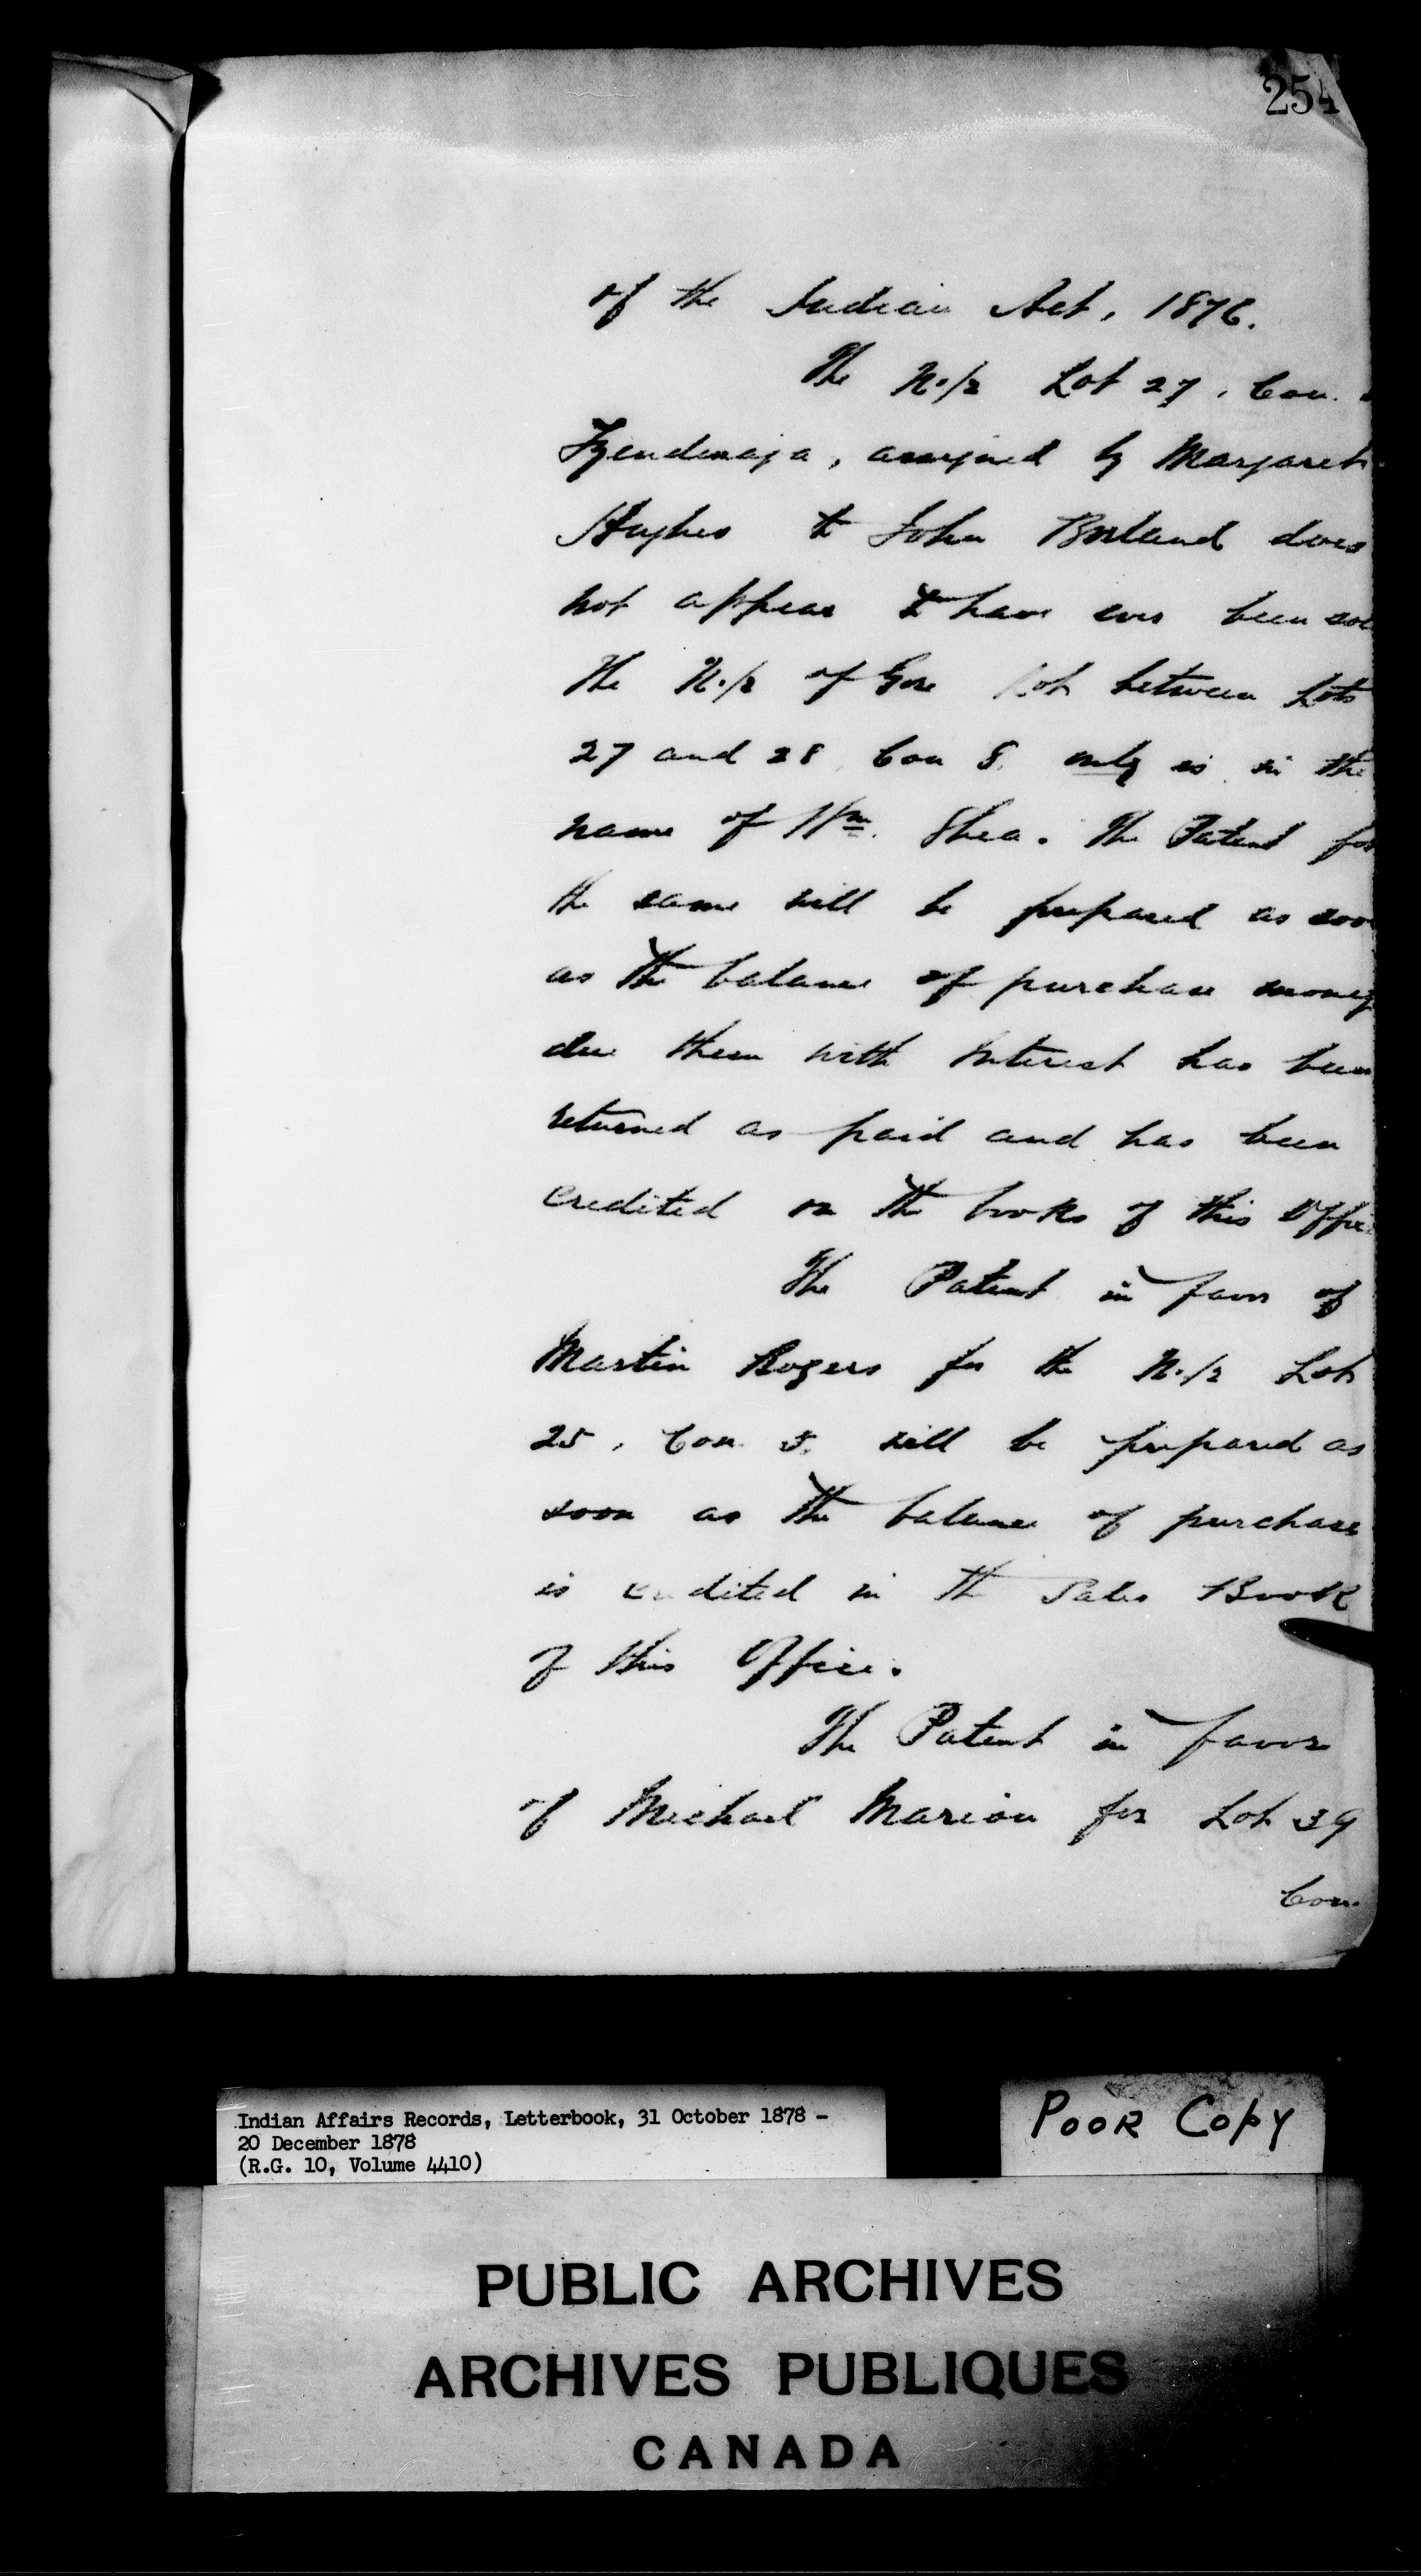 254
of the Indian Act, 1876.
The N.1/2 Lot 27, Con.
Tyendenaja, assigned by Margaret
Hughes to John Borland does
not appear to have ever been
The N.1/2 of Gore Lot between Lots
27 and 28 Con 8. only is in the
name of Wm. Shea. The Patent for
the same will be prepared as soo
as the balance of purchase money
due them with Interest has been
returned as paid and has been
credited on the books of this Offic
The Patent in favor of
Martin Rogers for the N.1/2 Lot
25, Con. 5. will be prepared as
soon as the balance of purchase
is credited in the Sales Book
of this Office.
The Patent in favor
of Michael Marion for Lot 39
Con.
Indian Affairs Records, Letterbook, 31 October 1878 -
20 December 1878
(R.G. 10, Volume 4410)
POOR COPY
PUBLIC ARCHIVES
ARCHIVES PUBLIQUES
CANADA